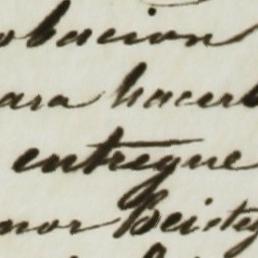 obacion
ara hacerl
entregue
nor Beistey